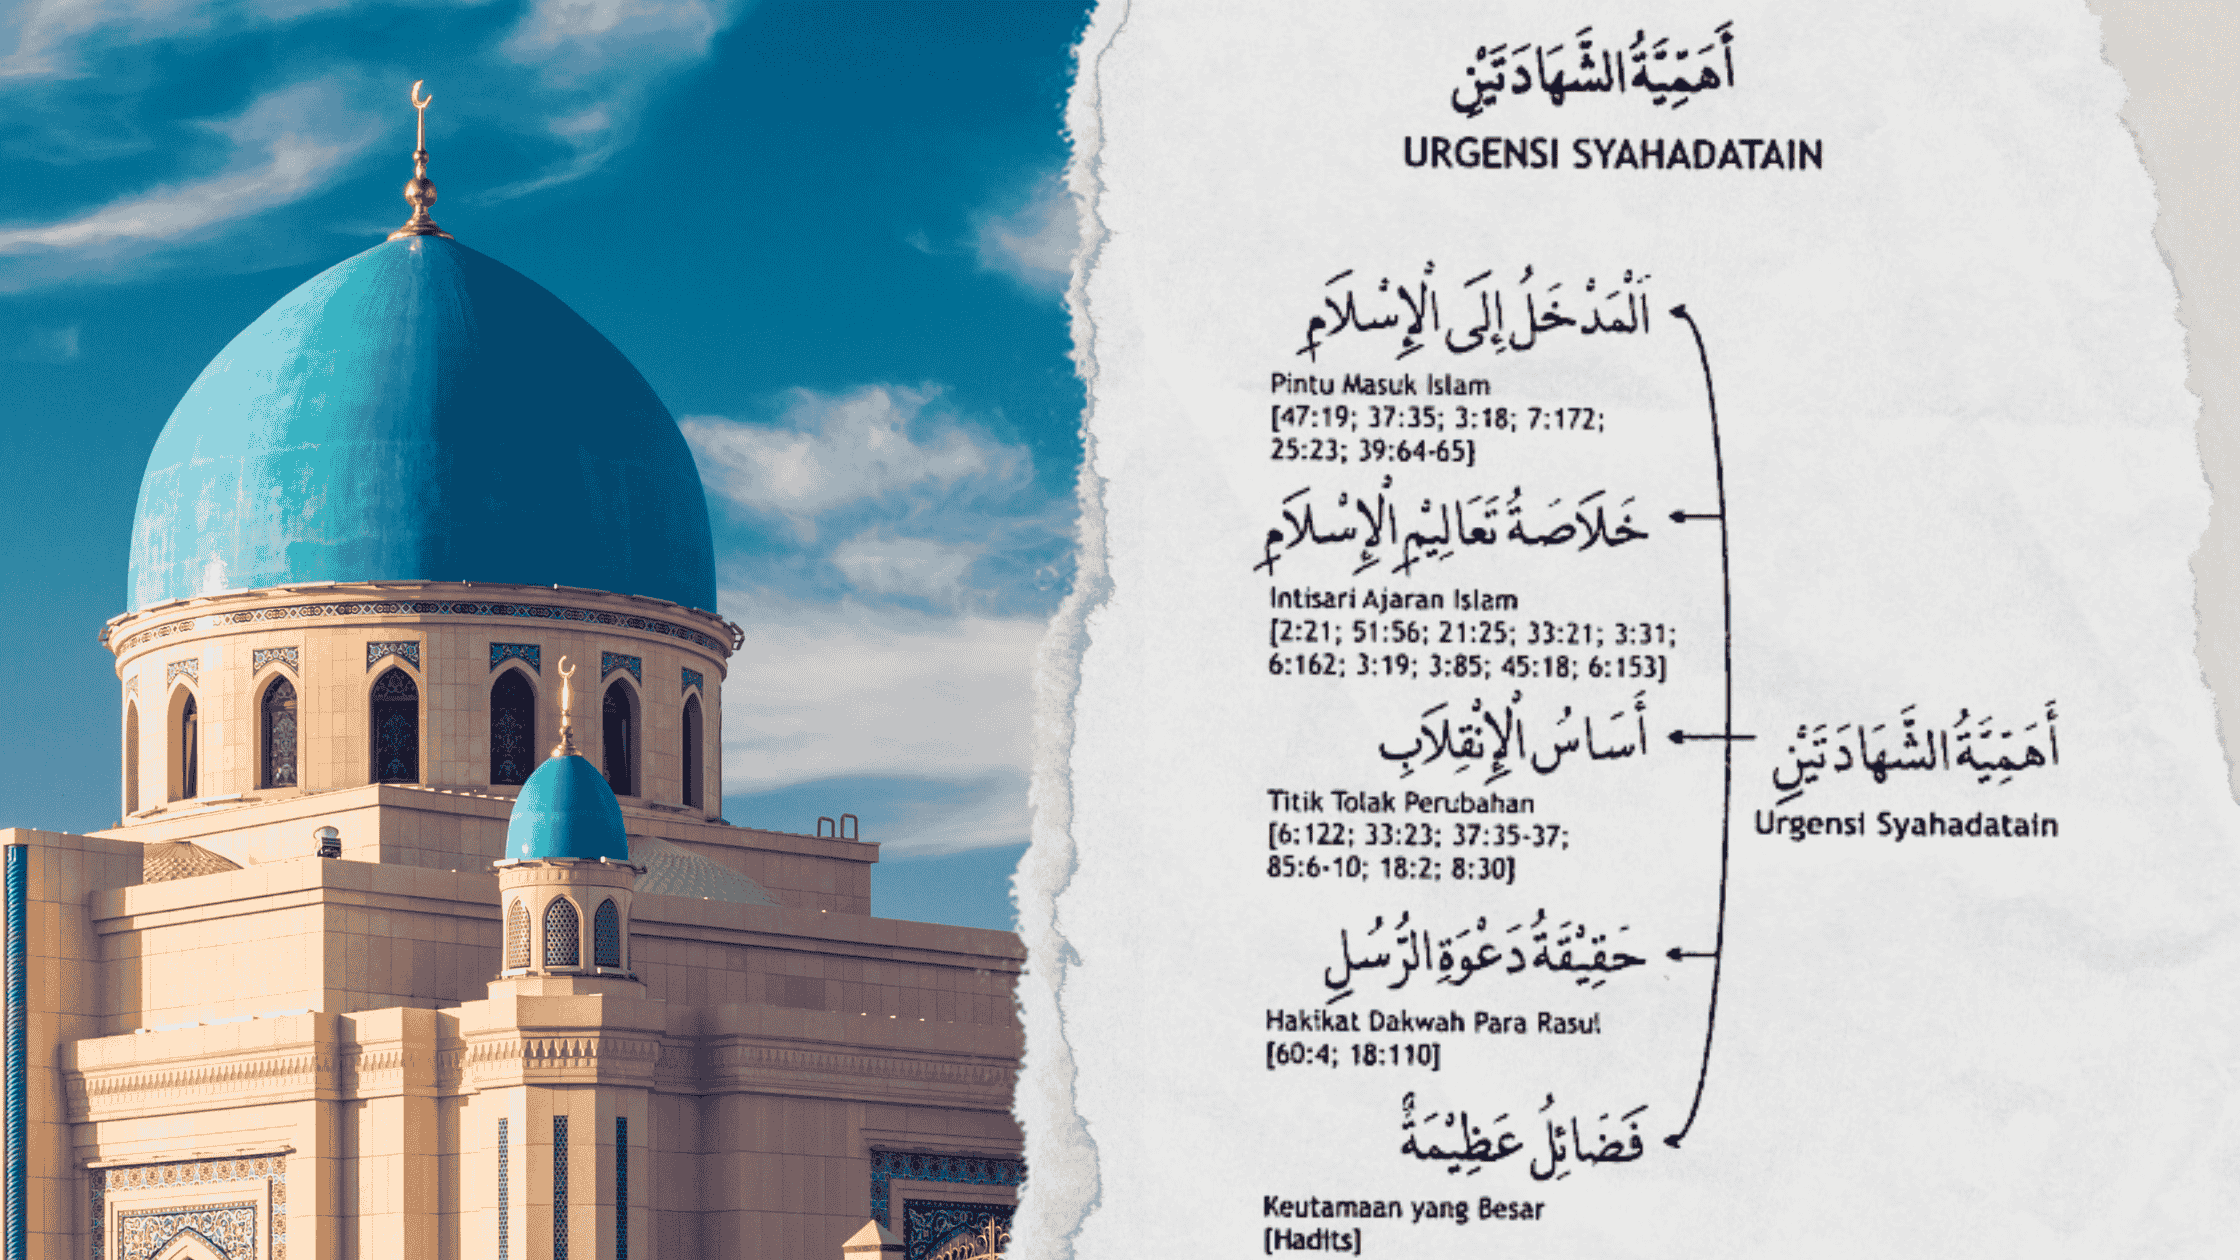 أَهَمِّيَّةُ الشَّهَادَتَيْنِ
URGENSI SYAHADATAIN
اَلْمَدْخَلُ إِلَى الْإِسْلَامِ
Pintu Masuk Islam
[47:19; 37:35; 3:18; 7:172;
25:23; 39:64-65]
خَلَاصَةُ تَعَالِيْمِ الْإِسْلَامِ
Intisari Ajaran Islam
[2:21; 51:56; 21:25; 33:21; 3:31;
6:162; 3:19; 3:85; 45:18; 6:153]
أَسَاسُ الْإِنْقِلَابِ
Titik Tolak Perubahan
[6:122; 33:23; 37:35-37;
85:6-10; 18:2; 8:30]
أَهَمِّيَّةُ الشَّهَادَتَيْنِ
Urgensi Syahadatain
حَقِيْقَةُ دَعْوَةِ الرُّسُلِ
Hakikat Dakwah Para Rasul
[60:4; 18:110]
فَضَائِلُ عَظِيْمَةٌ
Keutamaan yang Besar
[Hadits]